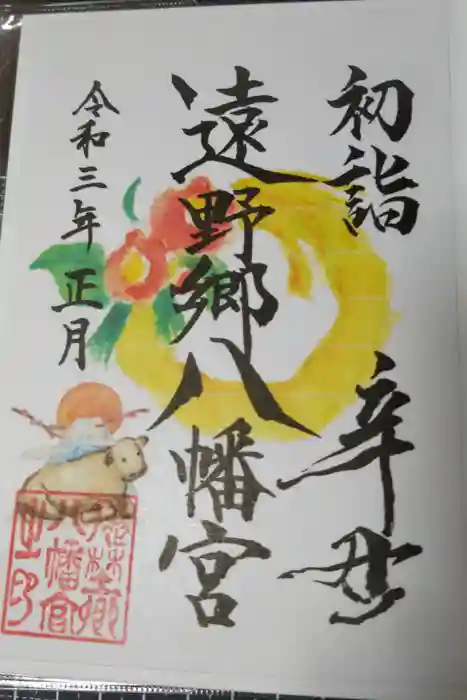 初詣 辛丑
遠野郷八幡宮
令和三年正月
遠野郷
八幡宮
之印